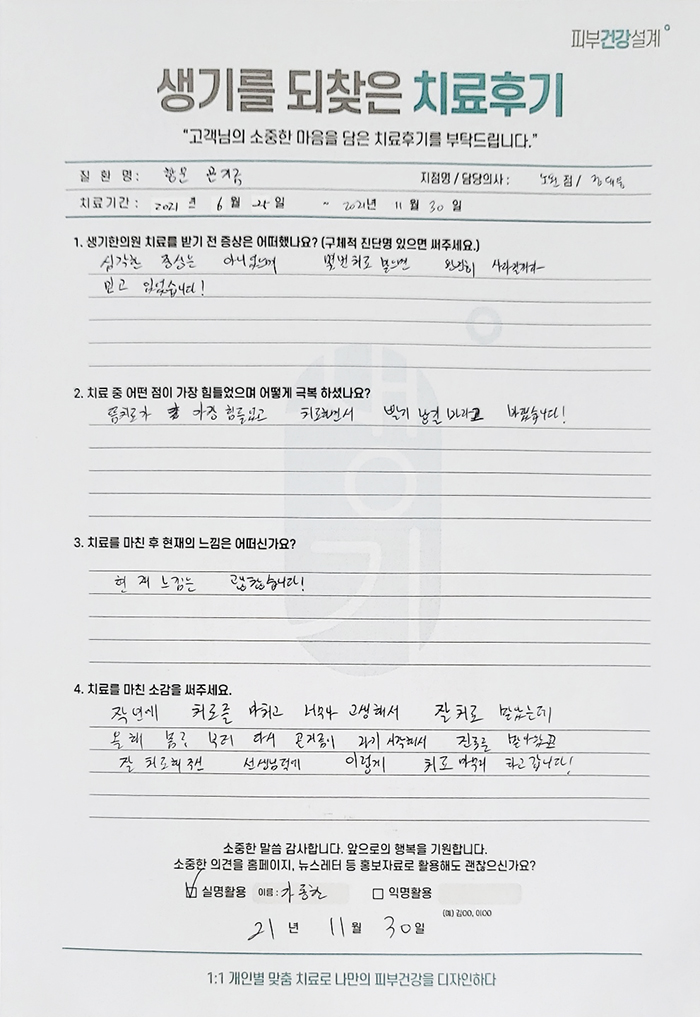 피부건강설계
생기를 되찾은 치료후기
"고객님의 소중한 마음을 담은 치료후기를 부탁드립니다."
질 환 명 : 항문 곤지름 지점명 / 담당의사 : 노원 점 /
치료기간 : 2021 년 6 월 25 일 ~ 2021년 11 월 30 일
1. 생기한의원 치료를 받기 전 증상은 어떠했나요? (구체적 진단명 있으면 써주세요.)
심각한 증상는 아니였으며 몇번치료 받으면 완전히 사라진다
믿고 있었습니다!
2. 치료 중 어떤 점이 가장 힘들었으며 어떻게 극복 하셨나요?
뜸치료가 가장 힘들었고 치료하면서 빨리 낫길 바라고 바랬습니다!
3. 치료를 마친 후 현재의 느낌은 어떠신가요?
현재 느낌는 괜찮습니다!
4. 치료를 마친 소감을 써주세요.
작년에 치료를 마치고 너무나 고생해서 잘 치료 받았는데
올해 봄 부터 다시 곤지름이 나기 시작해서 진료를 받
잘 치료해 주신 선생님덕에 이렇게 치료 마무리 하고 갑니다!
생기
소중한 말씀 감사합니다. 앞으로의 행복을 기원합니다.
소중한 의견을 홈페이지, 뉴스레터 등 홍보자료로 활용해도 괜찮으신가요?
실명활용 이름 : 가동한 익명활용
(예) 김OO, 이OO
21 년 11 월 30 일
1:1 개인별 맞춤 치료로 나만의 피부건강을 디자인하다